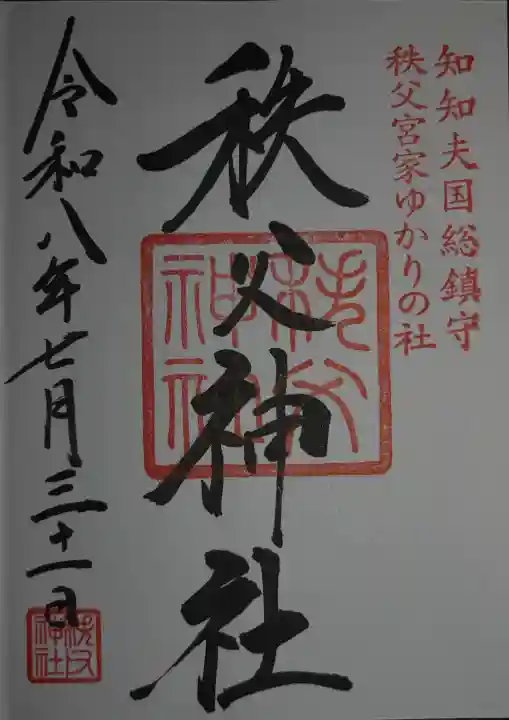 知知夫国総鎮守
秩父宮家ゆかりの社
秩父神社
秩父神社
令和八年七月三十一日
秩父神社